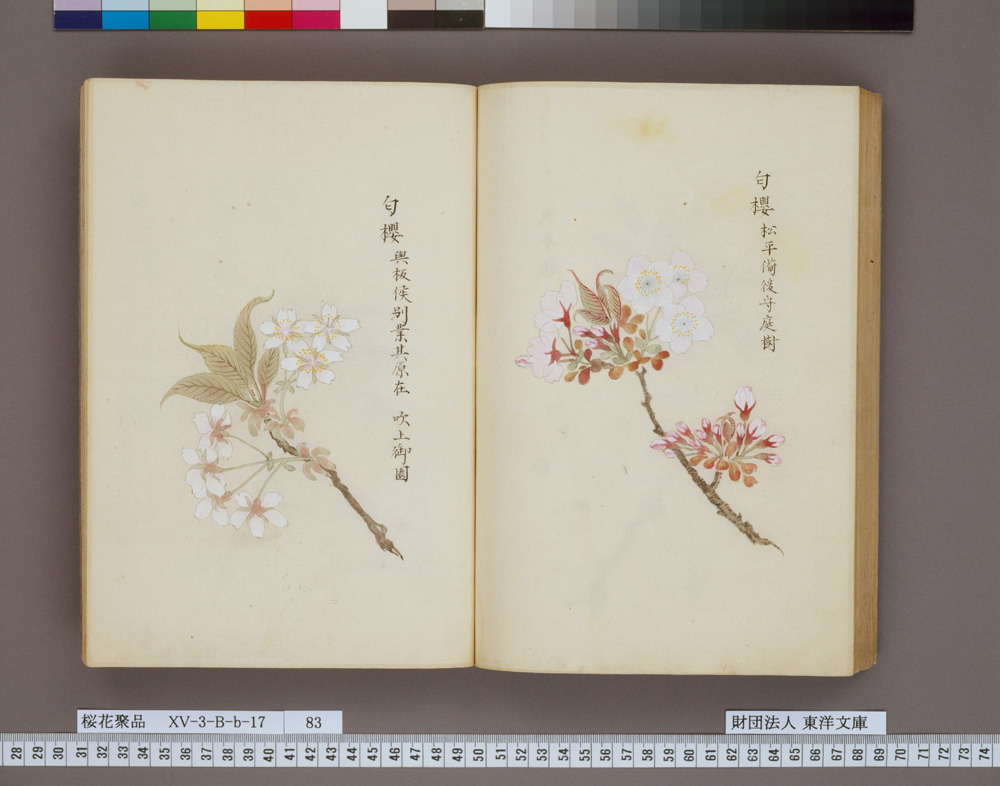 匂櫻 松平備後守庭樹
匂櫻 與板侯别業其原在 吹上御園
桜花聚品 XV-3-B-b-17 83
財団法人 東洋文庫
28 29 30 31 32 33 34 35 36 37 38 39 40 41 42 43 44 45 46 47 48 49 50 51 52 53 54 55 56 57 58 59 60 61 62 63 64 65 66 67 68 69 70 71 72 73 74